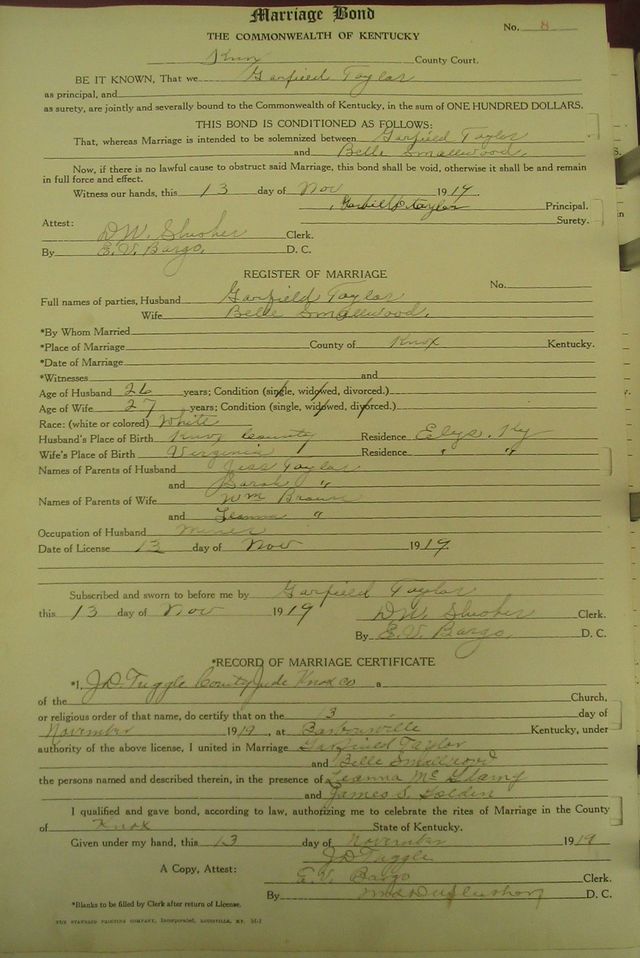 Marriage Bond
No. 8
THE COMMONWEALTH OF KENTUCKY
Knox County Court.
BE IT KNOWN, That we Garfield Taylor
as principal, and
as surety, are jointly and severally bound to the Commonwealth of Kentucky, in the sum of ONE HUNDRED DOLLARS.
THIS BOND IS CONDITIONED AS FOLLOWS:
That, whereas Marriage is intended to be solemnized between Garfield Taylor
and Belle Smallwood.
Now, if there is no lawful cause to obstruct said Marriage, this bond shall be void, otherwise it shall be and remain
in full force and effect.
Witness our hands, this 13 day of Nov 1919
taylor Principal.
Attest: Surety.
D.W. Slusher Clerk.
By E.V. Bargo. D. C.
REGISTER OF MARRIAGE
No.
Full names of parties, Husband Garfield Taylor
Wife Belle Smallwood.
*By Whom Married
*Place of Marriage County of Knox Kentucky.
*Date of Marriage
*Witnesses and
Age of Husband 26 years; Condition (single, widowed, divorced.)
Age of Wife 27 years; Condition (single, widowed, divorced.)
Race: (white or colored) White
Husband's Place of Birth Knox County Residence Elys. Ky
Wife's Place of Birth Virginia Residence " "
Names of Parents of Husband Jess Taylor
and Sarah "
Names of Parents of Wife Wm Brown
and Leanna "
Occupation of Husband Miner
Date of License 13 day of Nov 1919.
Subscribed and sworn to before me by Garfield Taylor
this 13 day of Nov 1919 D.W. Slusher Clerk.
By E.V. Bargo. D. C.
*RECORD OF MARRIAGE CERTIFICATE
*I, J.D. Tuggle County Jude Knox co a
of the Church,
or religious order of that name, do certify that on the 3 day of
November 1919, at Barbourville Kentucky, under
authority of the above license, I united in Marriage Garfield Taylor
and Belle Smallwood
the persons named and described therein, in the presence of Leanna
and James S. Golden
I qualified and gave bond, according to law, authorizing me to celebrate the rites of Marriage in the County
of Knox State of Kentucky.
Given under my hand, this 13 day of November 1919
J.D Tuggle
A Copy, Attest: E.V. Bargo Clerk.
By D. C.
*Blanks to be filled by Clerk after return of License.
THE STANDARD PRINTING COMPANY, Incorporated, LOUISVILLE, KY.